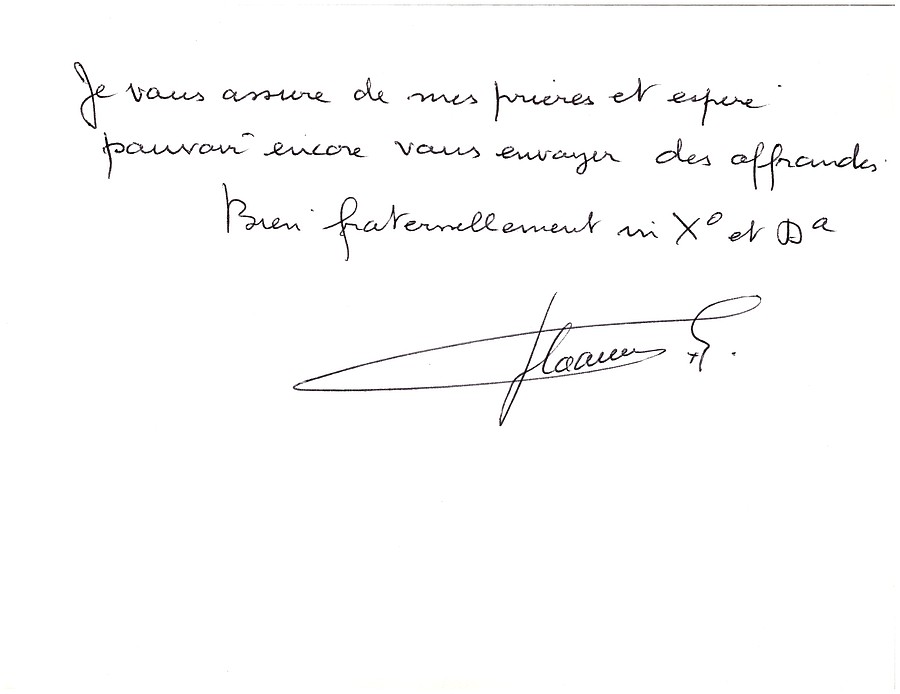 Je vous assure de mes prières et espère
pouvoir encore vous envoyer des offrandes.
Bien fraternellement in X° et Dª